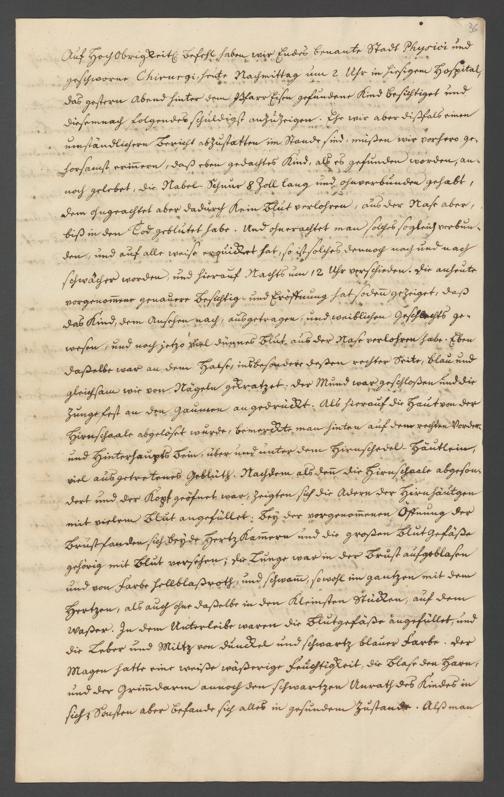 36
Auf HochObrigkeitl. Befehl haben wir Endes benante Stadt Physici und
geschworne Chirurgi, heute Nachmittag um 2 Uhr in hiesigem Hospital,
das gestern Abend hinter dem Pfarr Eisen gefundene Kind besichtiget und
diesemnach folgendes schuldigst anzuzeigen. Ehe wir aber dißfals einen
umständlichern Bericht abzustatten im Stande sind, müßen wir vorhero ge-
horsamst erinnern, daß eben gedachtes Kind, als es gefunden worden, an-
noch gelebet, die Nabel-Schnur 8 Zoll lang und ohnverbunden gehabt,
dem ohngeachtet aber dadurch kein Blut verlohren, aus der Nase aber,
biß in den Tod geblutet habe. Und ohnerachtet man solches sogleich verbun-
den, und auf alle weise erquicket hat, so ist solches dennoch nach und nach
schwächer worden, und hierauf Nachts um 12 Uhr verschieden. Die anheute
vorgenommene genauere Besichtig- und Eröffnung hat sodenn gezeiget, daß
das Kind, dem Ansehen nach, ausgetragen, und weiblichen Geschlechts ge-
wesen, und noch jetzo viel dünnes Blut aus der Nase verlohren habe. Eben
daßelbe war an dem Halse, insbesondere deßen rechter Seite, blau und
gleichsam wie von Nägeln gekratzet, der Mund war geschloßen und die
Zunge fest an den Gaumen angedrückt. Als hierauf die Haut von der
Hirnschaale abgelöset wurde, bemerckte man hinten auf dem rechten Vorder-
und Hinterhaupts Bein, über und unter dem Hirnschedel-Häutlein,
viel ausgetretenes Geblüth. Nachdem als denn die Hirnschaale abgeson-
dert und der Kopf geöfnet war, zeigten sich die Adern der Hirnhäutgen
mit vielem Blut angefüllet. Bey der vorgenommenen Öfnung der
Brust fanden sich beyde Hertz Kamern und die großen Blutgefäße
gehörig mit Blut versehen; die Lunge war in der Brust aufgeblasen
und von Farbe hellblaßroth, und schwam, sowohl im gantzen mit dem
Hertzen, als auch ohne daßelbe in den kleinsten Stücken, auf dem
Waßer. In dem Unterleibe waren die Blutgefäße angefüllet, und
die Leber und Miltz von dunckel und schwartz blauer Farbe. Der
Magen hatte eine weiße wäßerige Feuchtigkeit, die Blase den Harn,
und der Grimmdarm annoch den schwartzen Unrath des Kindes in
sich; Sonsten aber befande sich alles in gesundem Zustande. Alß man